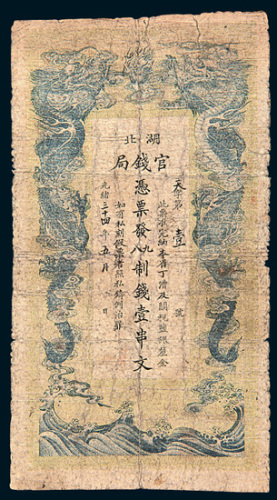 湖北
官錢局
天字第壹號
此票准完納本省丁漕及關稅鹽課釐金
憑票發九八制錢壹串文
如有私刻假票者照私鑄例治罪
光緒二十四年五月 日